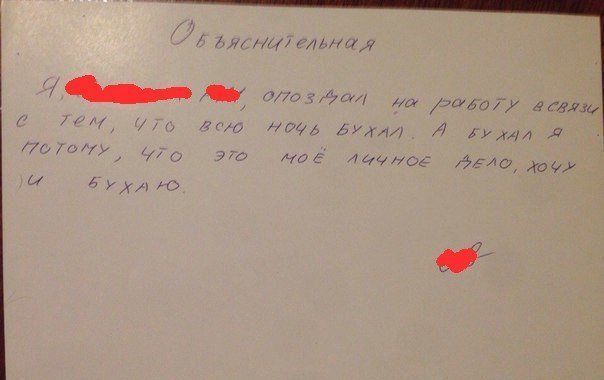 Объяснительная
Я, , опоздал на работу в связи
с тем, что всю ночь бухал. А бухал я
потому, что это моё личное дело, хочу
и бухаю.